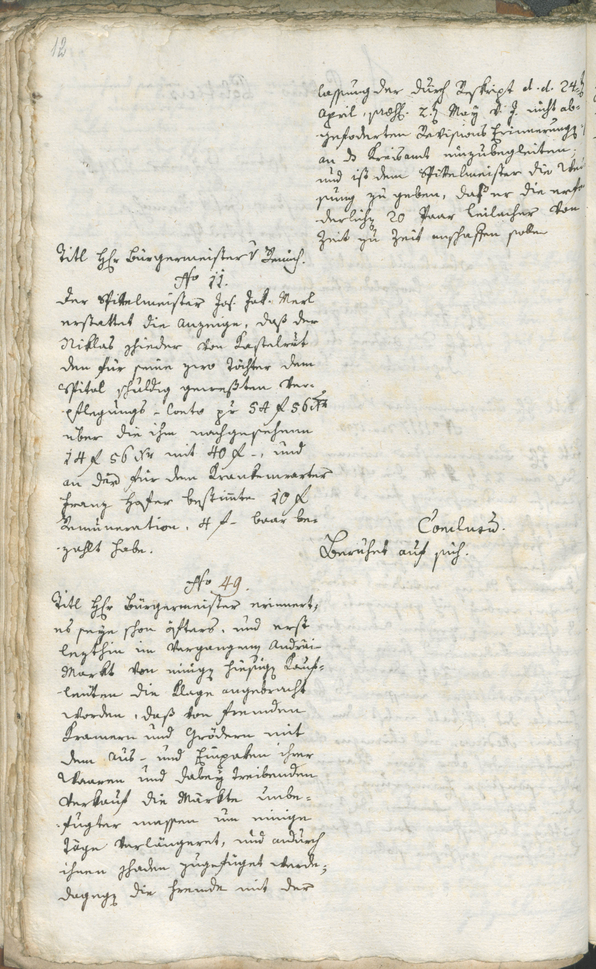 12
lassung der durch Reskript d. d. 24
April, praes. 2. May d. J. nicht ab-
gefoderten Revisions Erinnerung
an das Kreisamt einzubegleiten;
und ist dem Spitelmeister die Wei-
sung zu geben, daß er die erfo-
derlichen 20 Paar Leilacher von
Zeit zu Zeit anschaffen solle
Titl Hr Bürgermeister v
No 11.
Der Spitelmeister Jos. Jak. Merl
erstattet die Anzeige, daß der
Niklas Schieder von Kastelrut
den für seine zwo Töchter dem
Spital schuldig gewesten Ver-
pflegungs-Conto pr 54 f 56 xr
über die ihm nachgesehenen
14 f 56 xr mit 40 f -, und
an der für den Krankenwarter
Franz Hofer bestimte 10 f
Remuneration, 4 f - baar be-
zahlt habe.
Conclusum.
Beruhet auf sich.
No 49.
Titl Hr Bürgermeister erinnert,
es seye schon öfters, und erst
lezthin im vergangenen Andrei-
Markt von einigen hiesigen Kauf-
leuten die Klage angebracht
worden, daß von fremden
Kramern und Grödern mit
dem Aus- und Einpaken ihrer
Waaren und dabey treibenden
Verkauf die Märkte unbe-
fugter massen um einige
Täge verlängeret, und andurch
ihnen Schaden zugefüget werde;
dagegen die Fremde mit der